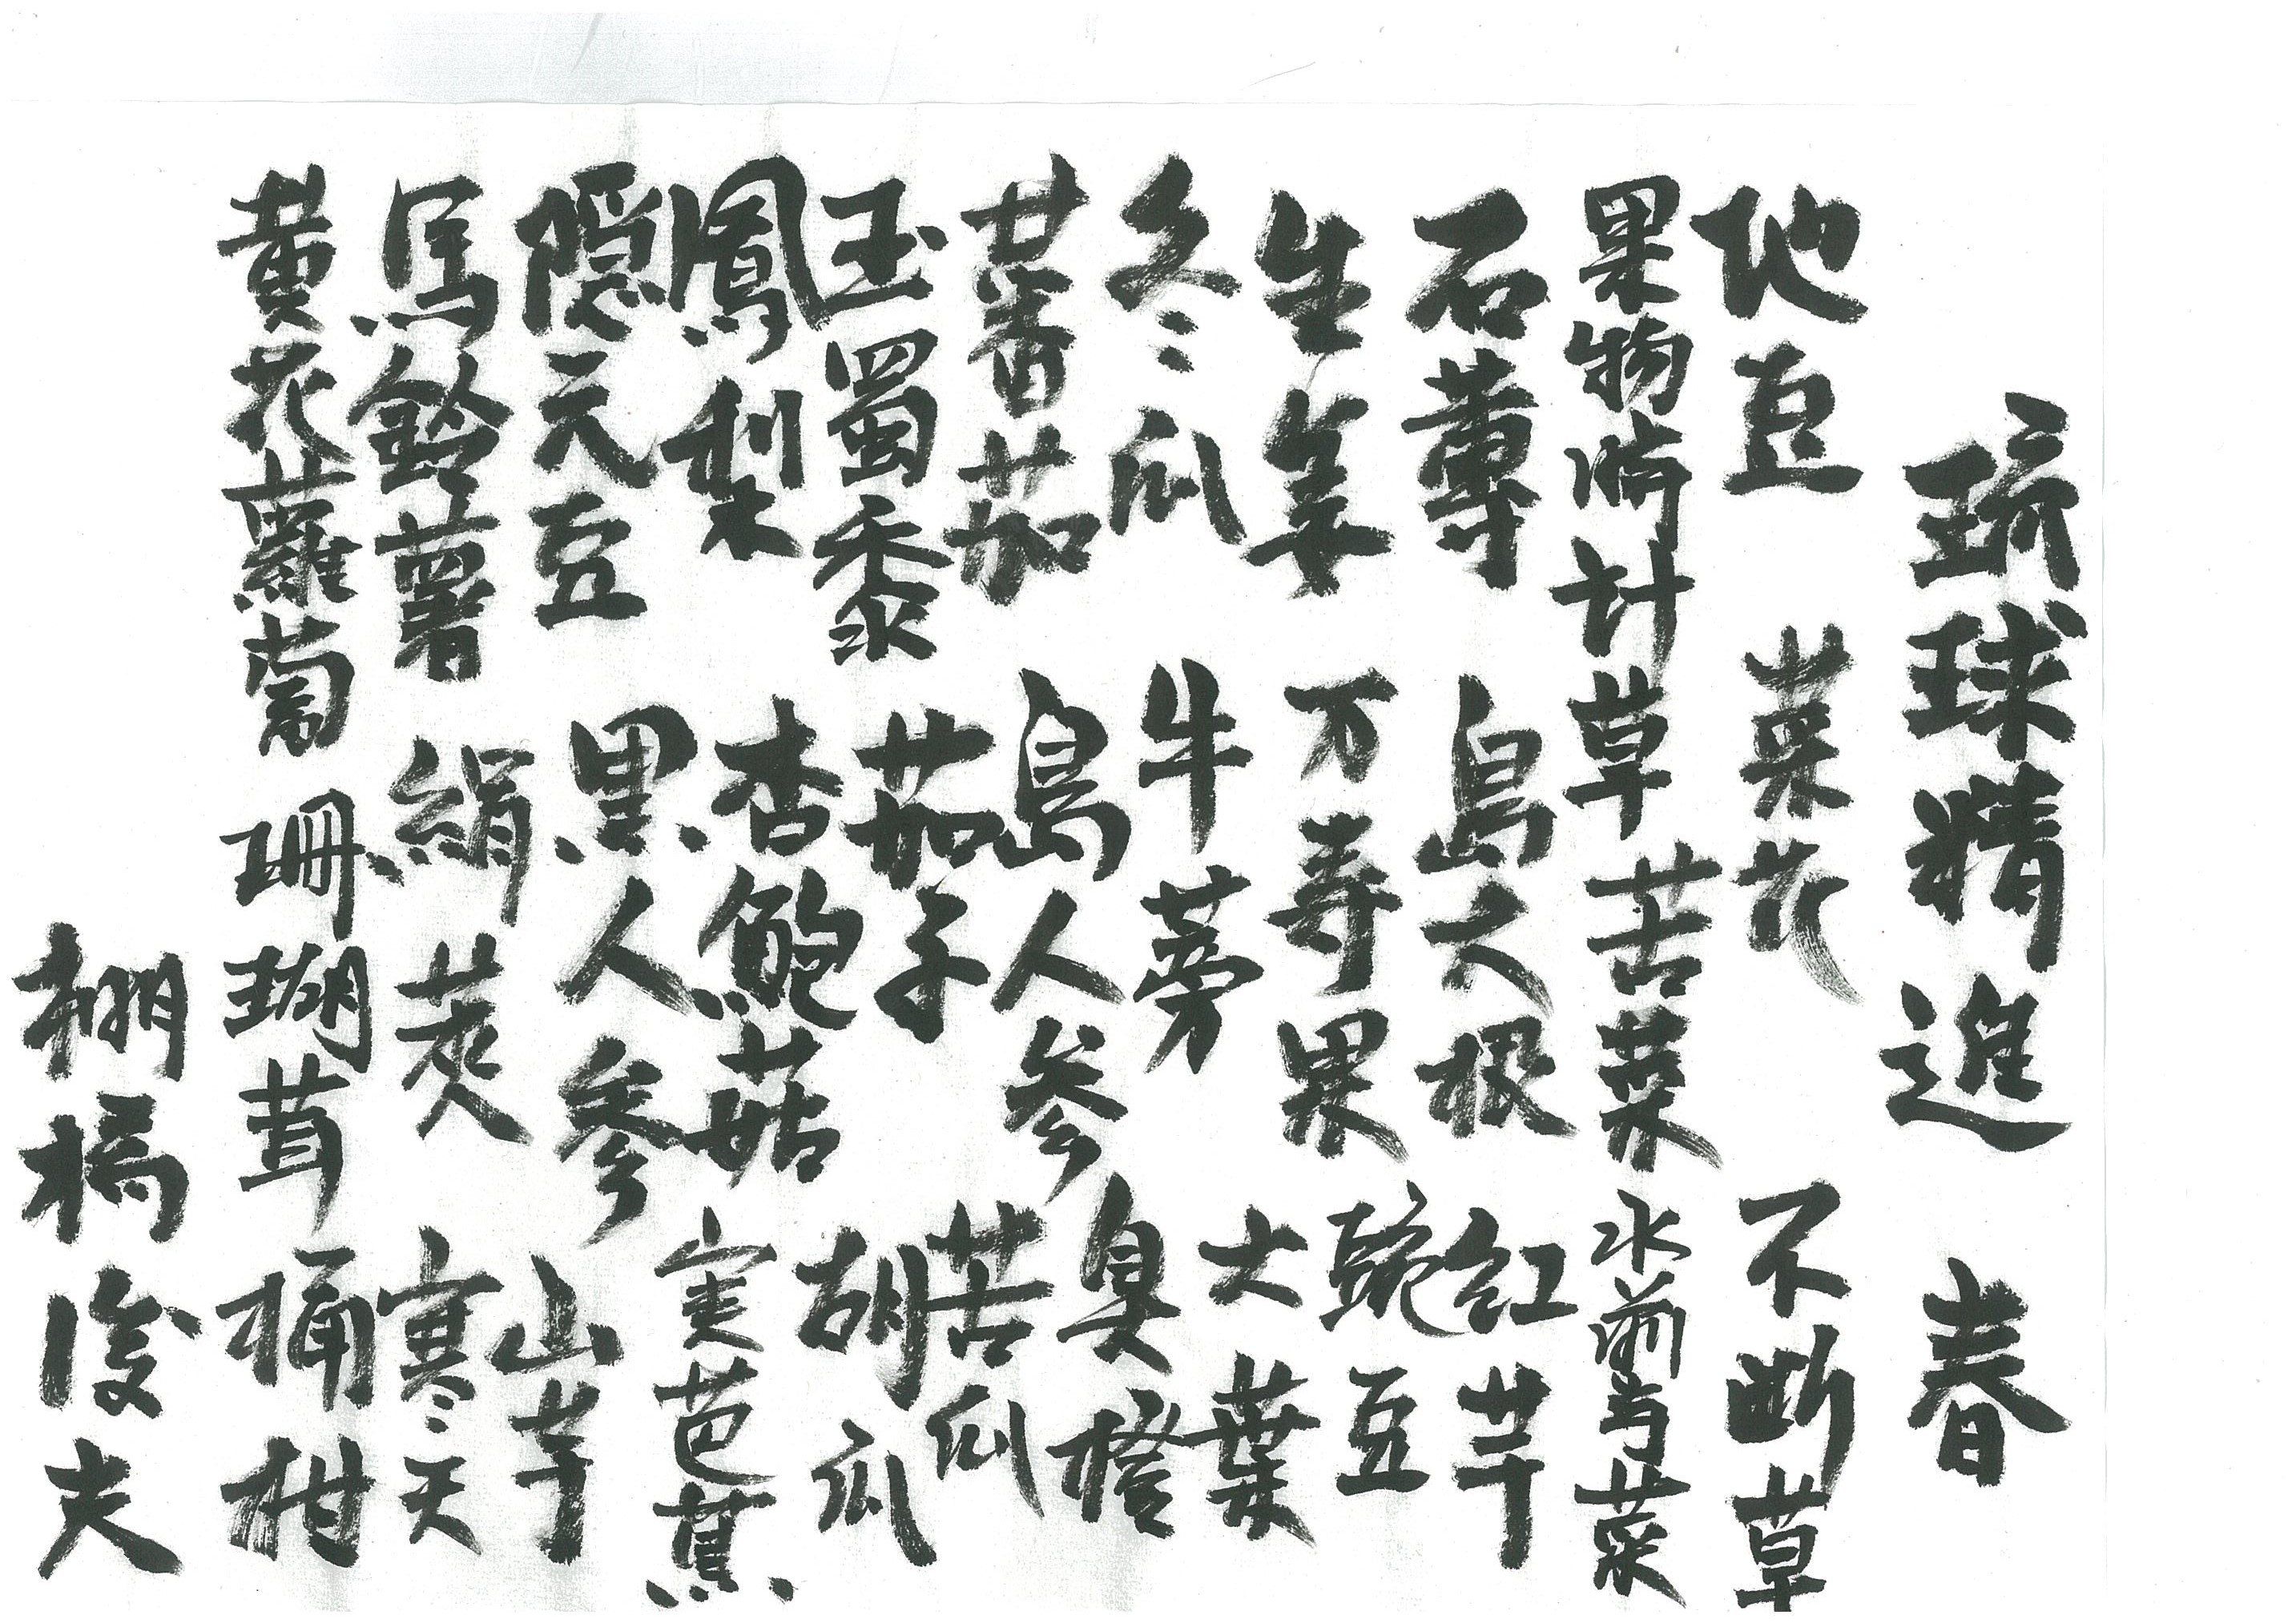 琉球精進 春
地豆 菜花 不断草
果物時計草 苦菜 水前寺菜
石蓴 島大根 紅芋
生姜 万寿果 豌豆
冬瓜 牛蒡 大葉
蕃茄 島人参 臭橙
玉蜀黍 茄子 苦瓜
鳳梨 杏鮑菇 胡瓜
隠元豆 黒人参 実芭蕉
馬鈴薯 絹莢 山芋
黄花蘿蔔 珊瑚茸 寒天
桶柑
棚橋俊夫